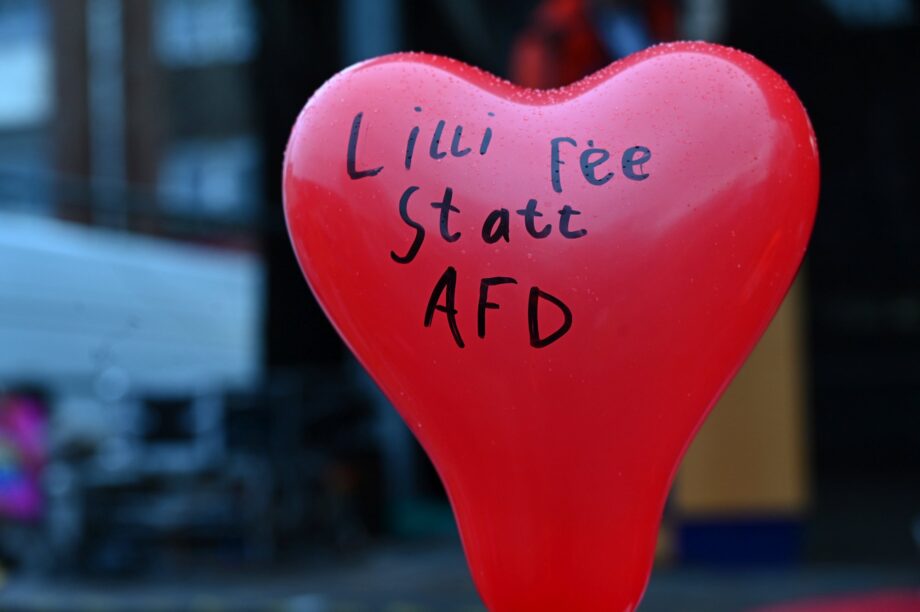 Lilli Fee
Statt
AFD